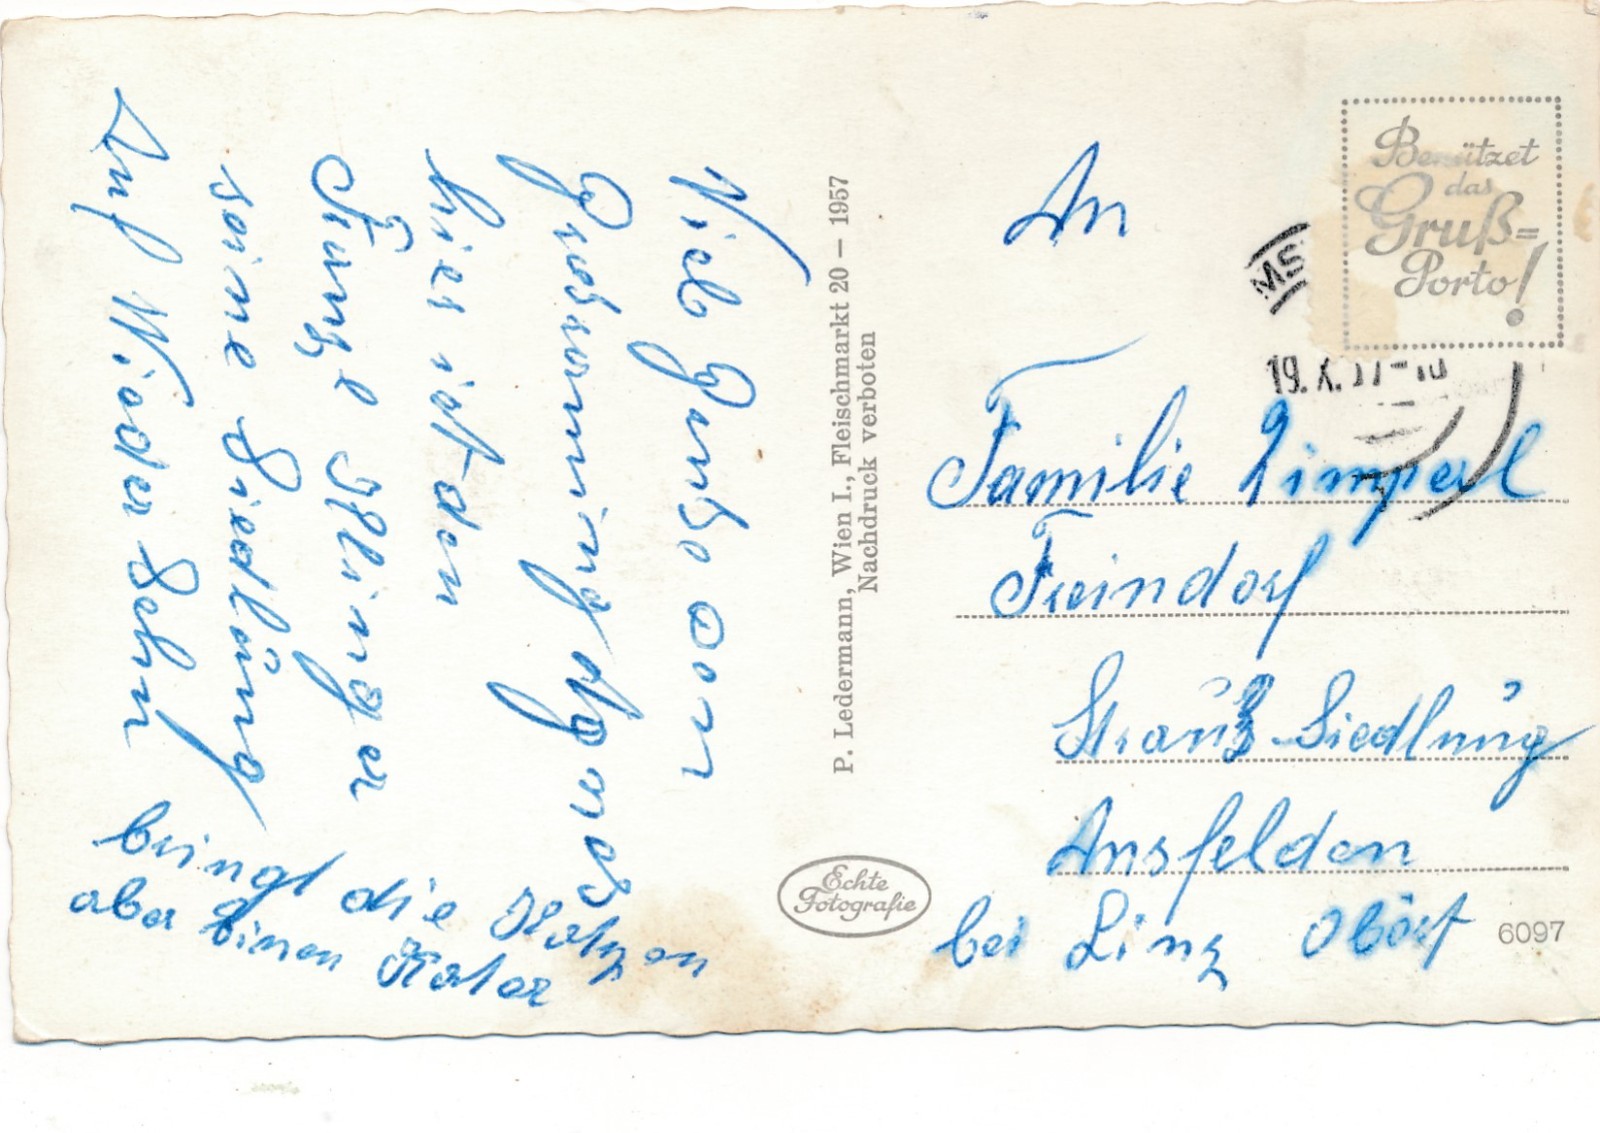 Viele Grüße von
Großraming
hier ist den
Klinger
seine Siedlung
Auf Wieder Sehn
bringt die Katzen
aber einen Kater
P. Ledermann, Wien I., Fleischmarkt 20 – 1957
Nachdruck verboten
Echte
Fotografie
Benützet
das
Gruß=
Porto!
MS
19. X.
An
Familie Zimperl
Freindorf
Strauß-Siedlung
Ansfelden
bei Linz Oböst
6097